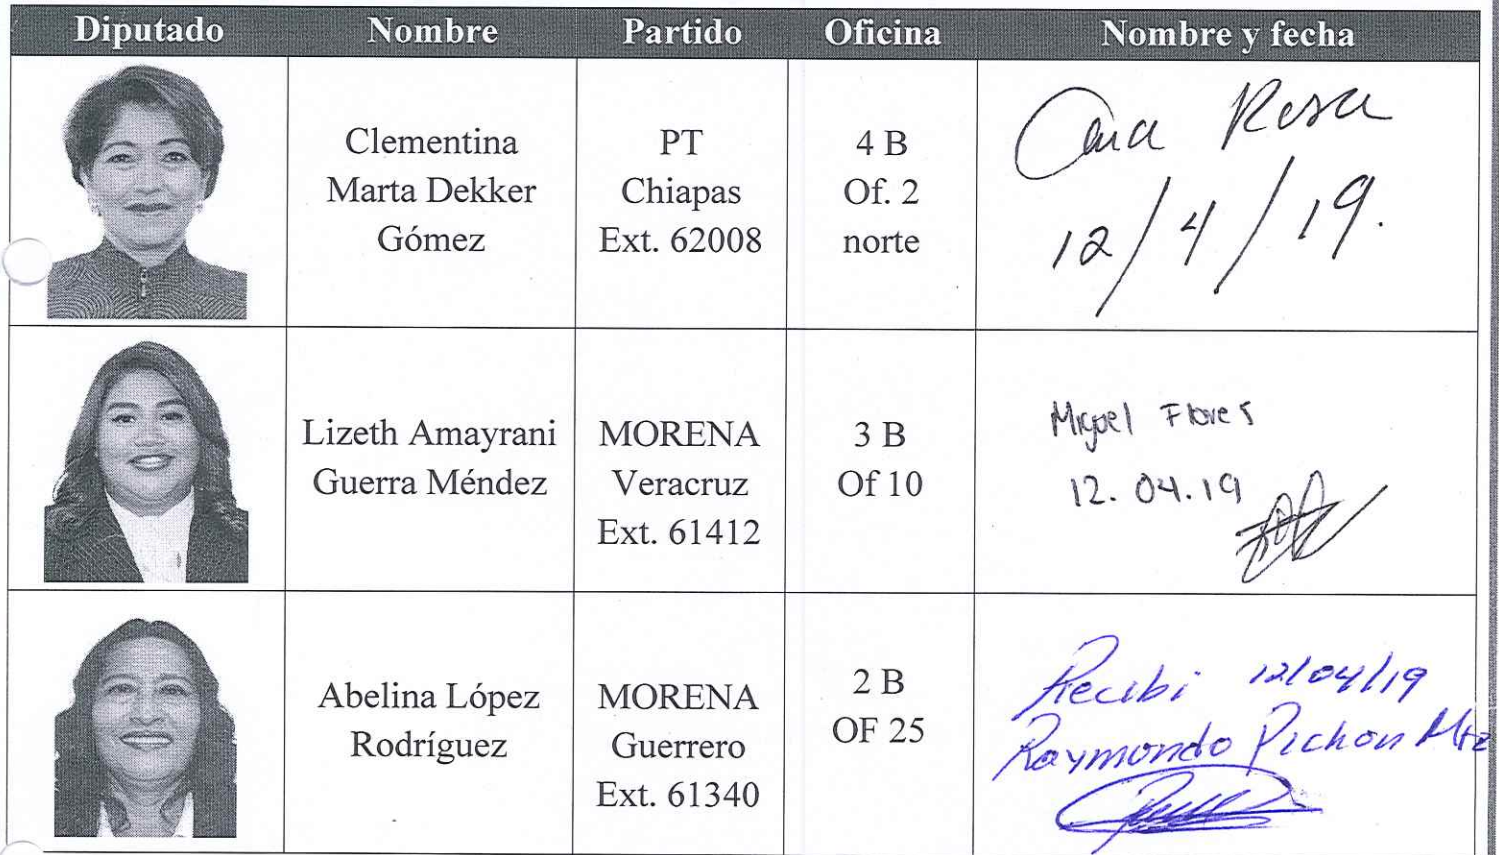 Diputado Nombre Partido Oficina Nombre y fecha
Clementina
Marta Dekker
Gómez
PT
Chiapas
Ext. 62008
4 B
Of. 2
norte
Ana Rosa
12/4/19.
Lizeth Amayrani
Guerra Méndez
MORENA
Veracruz
Ext. 61412
3 B
Of 10
Miguel Flores
12.04.19
Abelina López
Rodríguez
MORENA
Guerrero
Ext. 61340
2 B
OF 25
Recibi 12/04/19
Raymondo Pichon Mtz